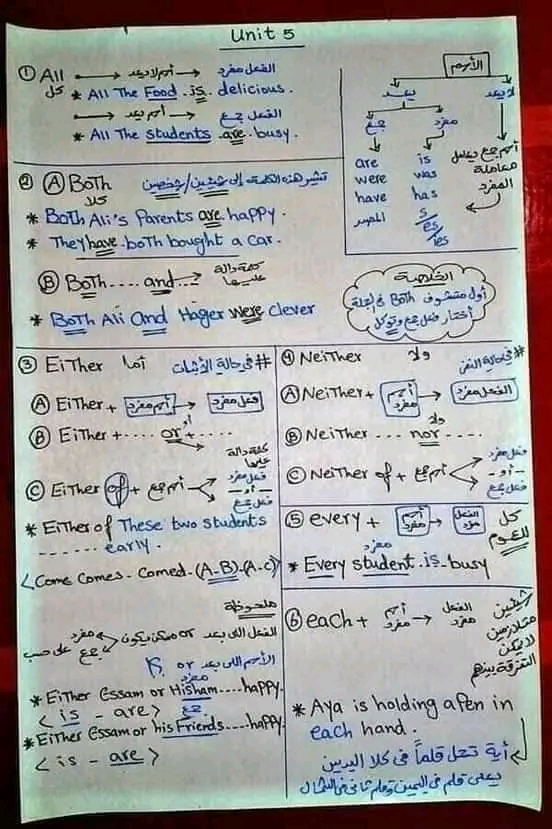 Unit 5
① All → اسم لا يعد → الفعل مفرد
كل
* All The Food is delicious.
→ اسم يعد → الفعل جمع
* All The students are busy.
الأسم
يعد
لا يعد
جمع
مفرد
are is
were was
have has
المصدر s
es
ies
اسم جمع يعامل
معاملة
المفرد
② Ⓐ BoTh تشير هذه الكلمة إلى شيئين/شخصين
كلا
* BoTh Ali's Parents are happy.
* They have boTh bought a car.
Ⓑ BoTh.... and → كلمة دالة
عليها
* BoTh Ali and Hager were clever
الخلاصة
أول متشوف BoTh فى الجملة
أختار فعل جمع وتوكل
③ EiTher أما # فى حالة الأثبات
Ⓐ EiTher + اسم مفرد → فعل مفرد
أو
Ⓑ EiTher +.... or +....
كلمة دالة
عليها
Ⓒ EiTher of + اسم جمع
فعل مفرد
- أو -
فعل جمع
* EiTher of These two students
....... early.
< Come - Comes - Comed - (A-B) - (A-C) >
ملحوظة
الفعل اللى بعد or ممكن يكون مفرد
جمع
على حسب
الأسم اللى بعد or
مفرد
* EiTher Essam or Hisham....happy.
< is - are >
جمع
* EiTher Essam or his Friends....happy.
< is - are >
④ NeiTher ولا # فى حالة النفى
Ⓐ NeiTher + اسم مفرد → الفعل مفرد
ولا
Ⓑ NeiTher .... nor ....
Ⓒ NeiTher of + اسم جمع
فعل مفرد
- أو -
فعل جمع
⑤ every + اسم مفرد → الفعل مفرد
كل
للعموم
مفرد
* Every student is busy
⑥ each + اسم مفرد → الفعل مفرد
شيئين
متلازمين
لا يمكن
التفرقة بينهم
* Aya is holding a Pen in
each hand.
أية تحمل قلماً فى كلا اليدين
يعنى قلم فى اليمين وقلم تانى فى الشمال